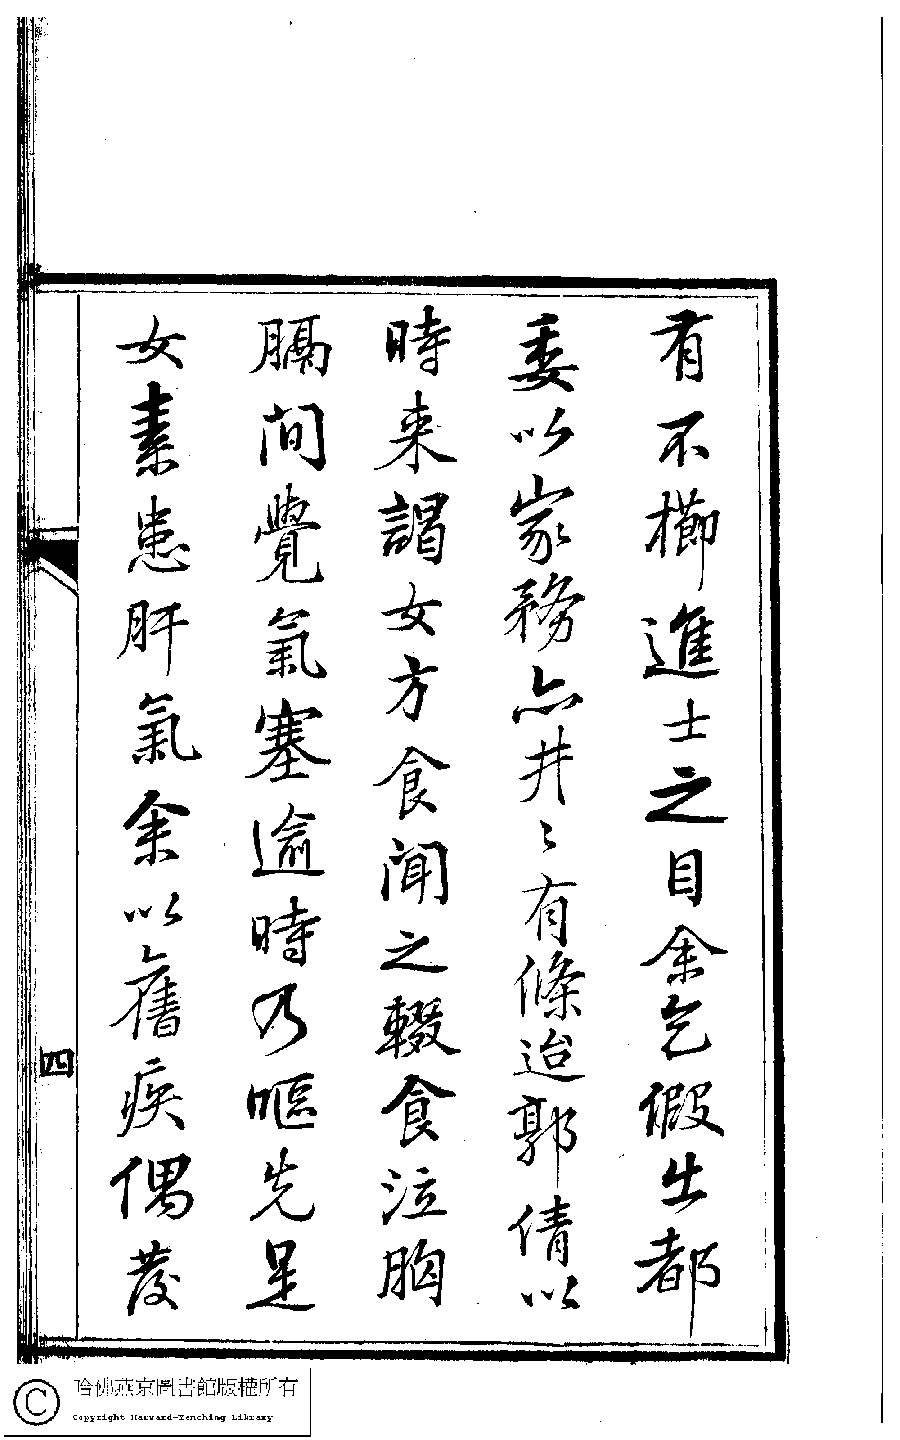 有不櫛進士之目余乞假出都
委以家務亦井〻有條迨郭倩以
時来謁女方食聞之輟食泣胸
膈間覺氣塞逾時乃嘔先是
女素患肝氣余以舊疾偶發
四
哈佛燕京圖書館版權所有
Copyright Harvard-Yenching Library